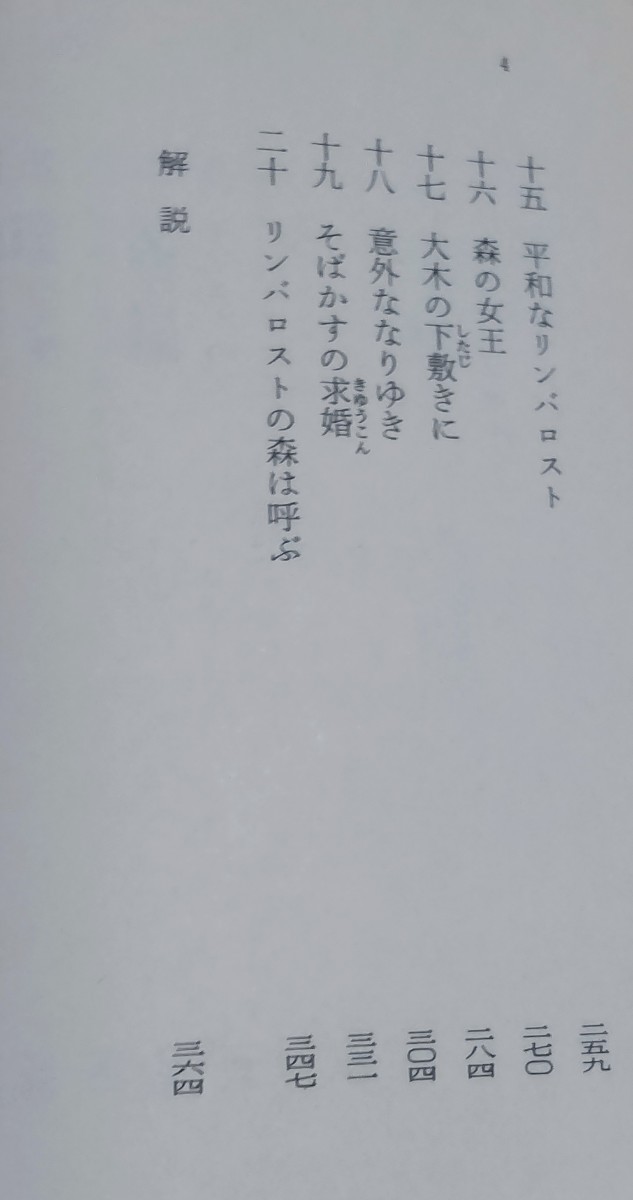 4
十五 平和なリンバロスト 二五九
十六 森の女王 二七〇
十七 大木の下敷きに 二八四
したじ
十八 意外ななりゆき 三〇四
十九 そばかすの求婚 三三一
きゆうこん
二十 リンバロストの森は呼ぶ 三四七
解説 三六四